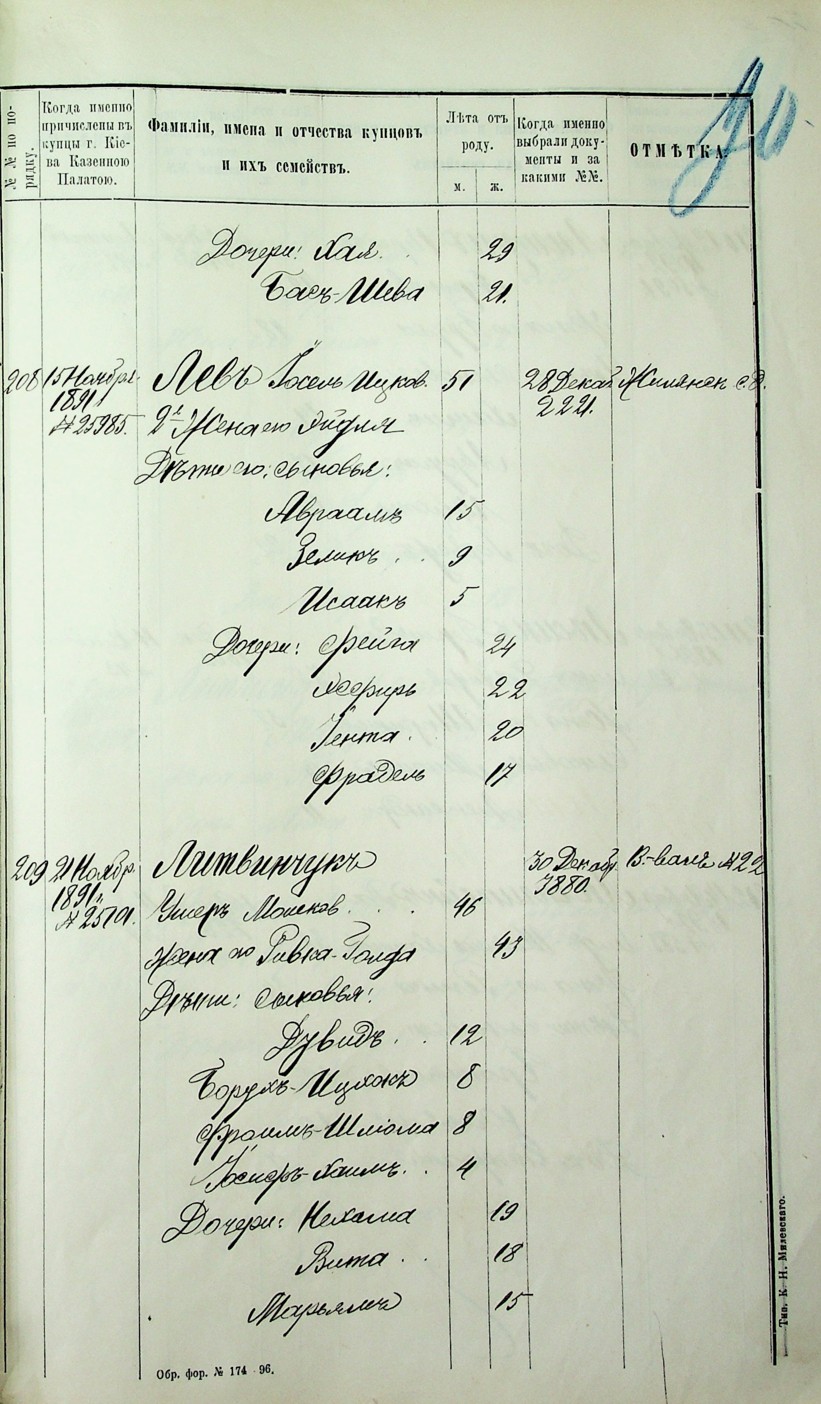 70
№№ по порядку.
Когда именно причислены въ купцы г. Кіева Казенною Палатою.
Фамиліи, имена и отчества купцовъ и ихъ семействъ.
Лѣта отъ роду.
м.
ж.
Когда именно выбрали документы и за какими №№.
ОТМѢТКА.
Дочери: Хая 29
Басъ-Шева 21.
208 15 Ноября Левъ Іосель Ицков. 51 28 Декаб
1891 г. 2221.
№ 25985. 2й Жена его
Дѣти его: сыновья:
Авраамъ 15
Зеликъ 9
Исаакъ 5
Дочери: Фейга 24
22
Гента 20
Фрадель 17
209 21 Ноябр. Литвинчукъ 30 Декабр. № 22
1891 г. 3880.
Ушеръ Мошков. 46
Жена его Ривка-Голда 43
Дѣти: сыновья:
Дувидъ 12
Борухъ-Ицхокъ 8
Фроимъ-Шліома 8
Іосифъ-Хаимъ 4
Дочери: Нехама 19
Вита 18
Марьямъ 15
Обр. фор. № 174 96.
Тип. К. Н. Милевскаго.